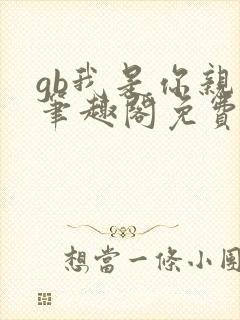 gb我是你親
筆趣閣免費
想當一條小團